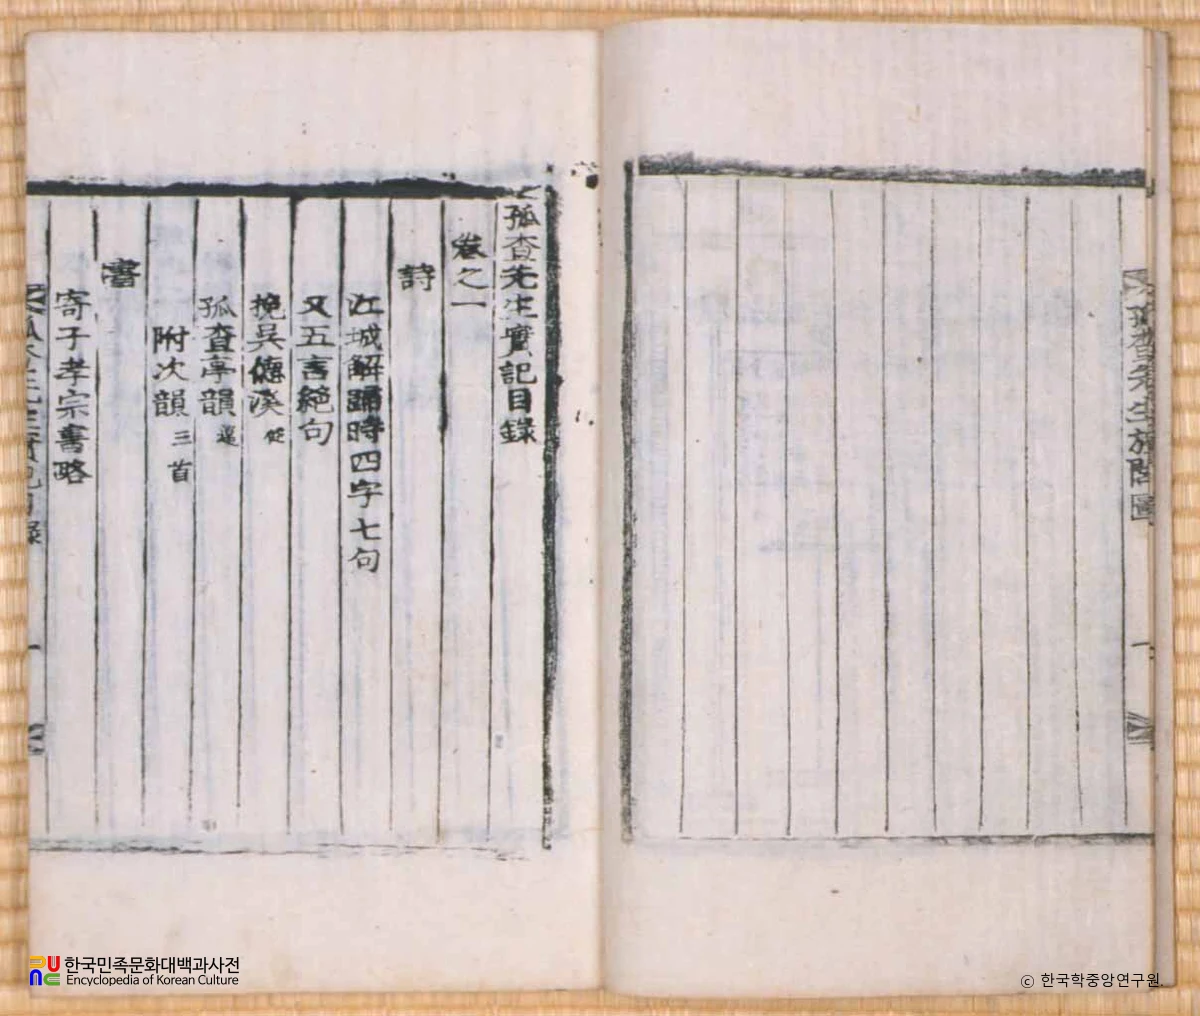 孤查先生旌閭圖
一
孤查先生實記目錄
卷之一
詩
江城解歸時四字七句
又五言絕句
挽吳德溪 從
孤查亭韻
附次韻 三首
書
寄子孝宗書略
孤查先生實記目錄
一
한국민족문화대백과사전
Encyclopedia of Korean Culture
© 한국학중앙연구원.